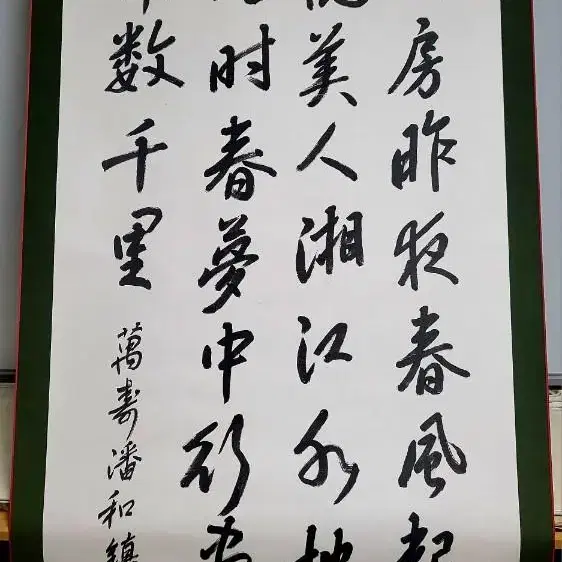 房昨夜春風起
美人湘江水
时春夢中行
数千里
萬壽潘和鎮